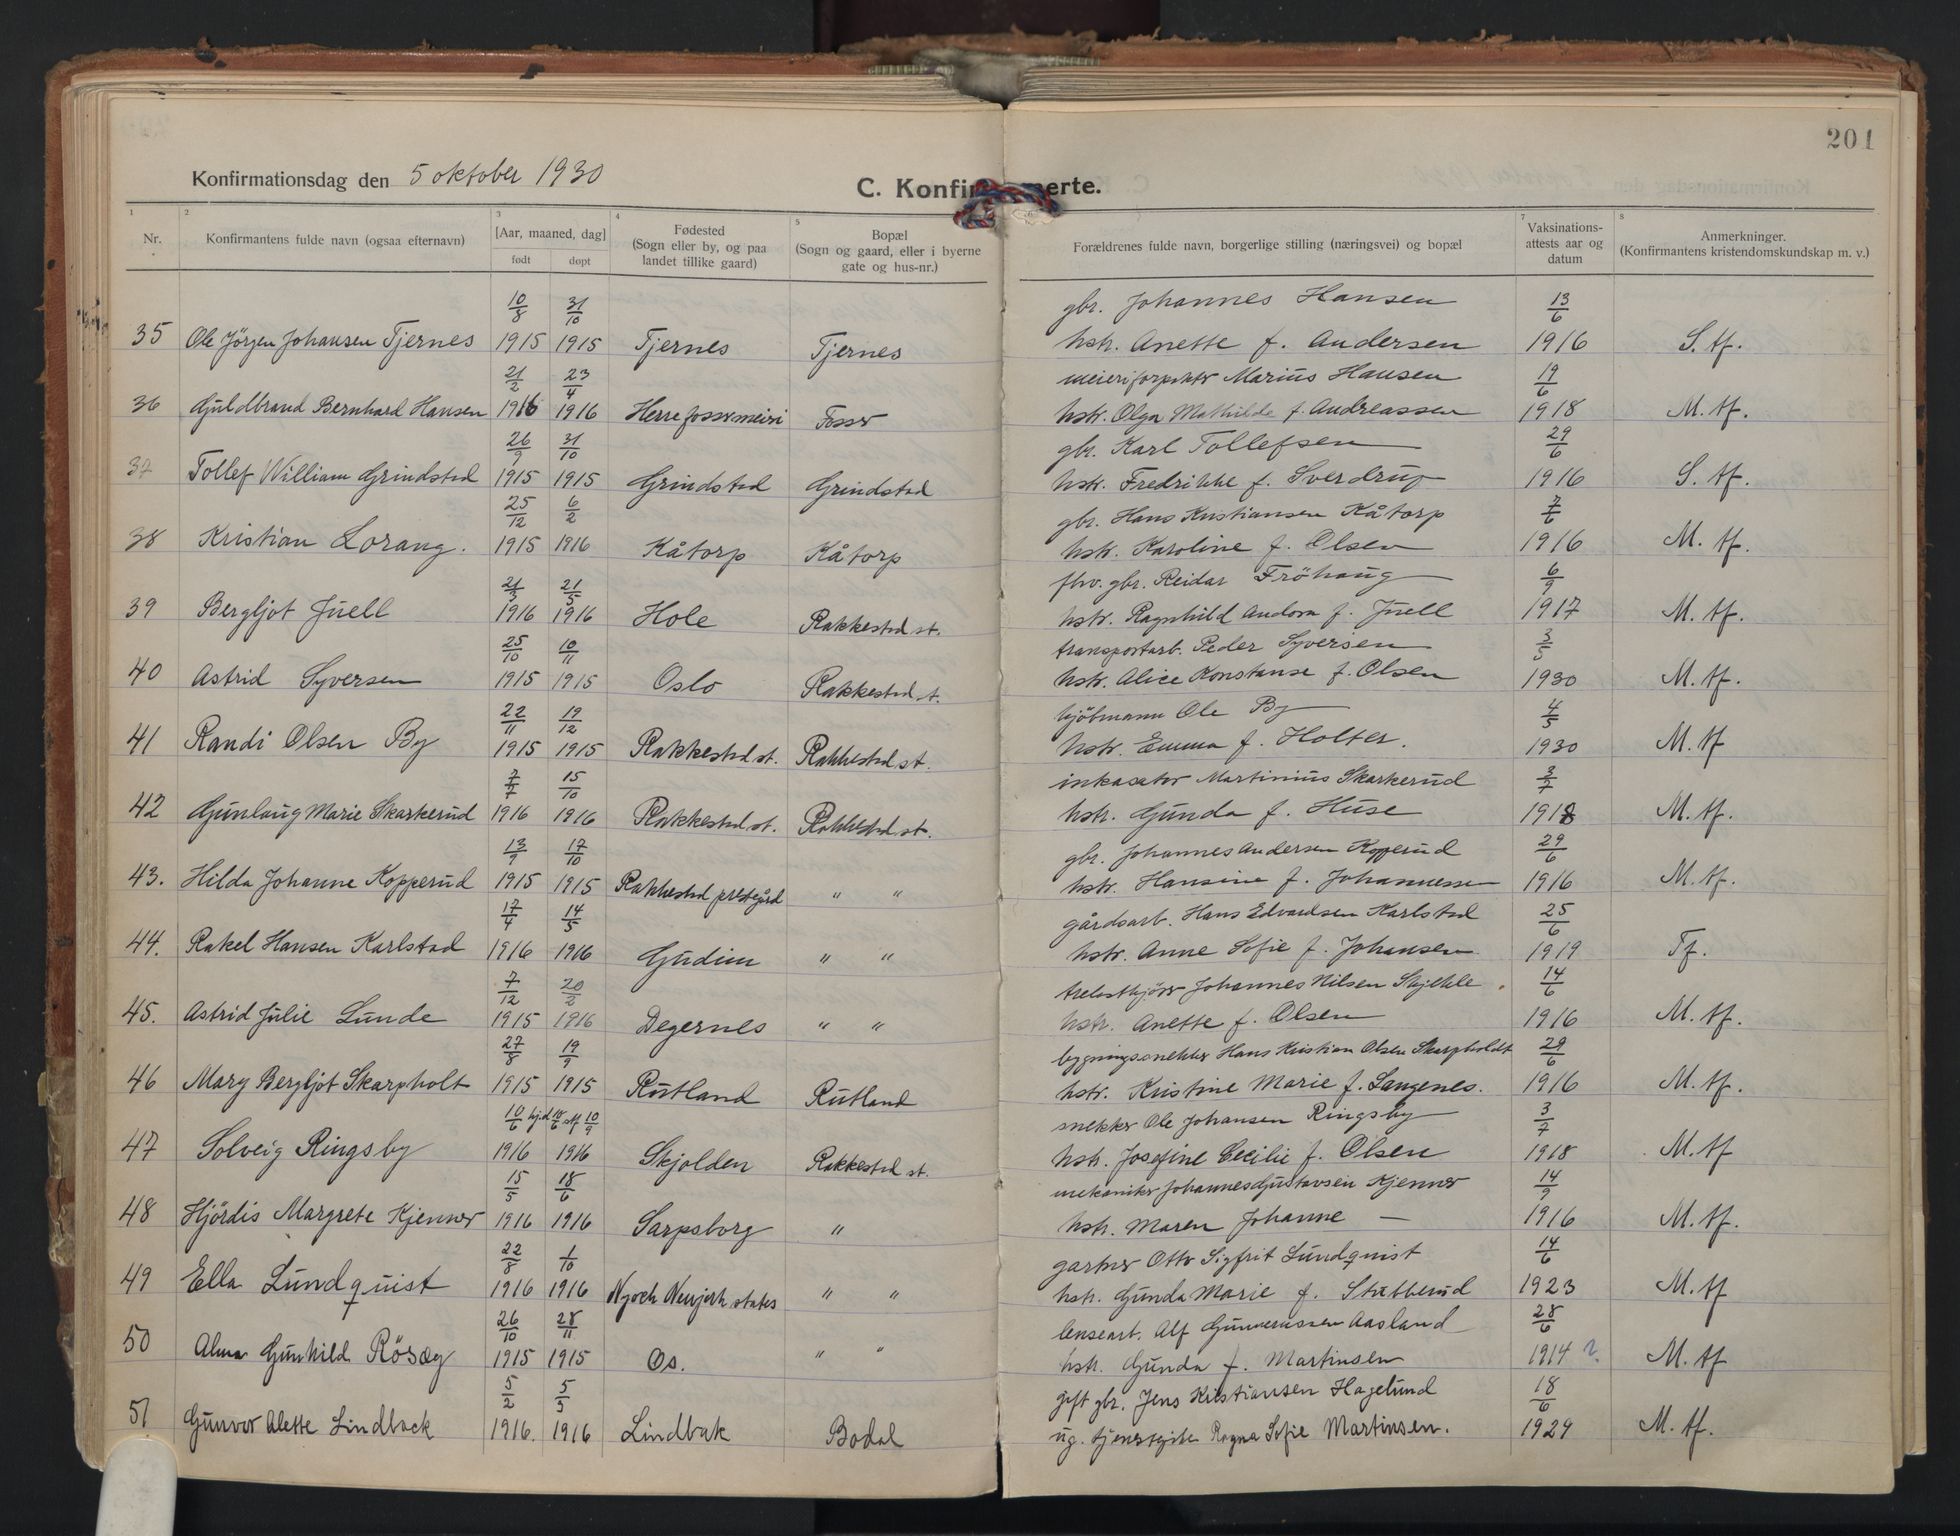 201
Konfirmationsdag den 5 oktober 1930
C. Konfir merte.
1 2 3 4 5 7 8
Nr. Konfirmantens fulde navn (ogsaa efternavn) [Aar, maaned, dag] født døpt Fødested (Sogn eller by, og paa landet tillike gaard) Bopæl (Sogn og gaard, eller i byerne gate og hus-nr.) Forældrenes fulde navn, borgerlige stilling (næringsvei) og bopæl Vaksinations-attests aar og datum Anmerkninger. (Konfirmantens kristendomskundskap m. v.)
10/8 31/10 gbr. Johannes Hansen 13/6
35 Ole Jörgen Johansen Tjernes 1915 1915 Tjernes Tjernes hstr. Anette f. Andersen 1916 S. tf.
21/2 23/4 Marius Hansen 19/6
36 Guldbrand Bernhard Hansen 1916 1916 Herrefossmeieri Foss hstr. Olga Mathilde f. Andreassen 1918 M. tf.
26/9 31/10 gbr. Karl Tollefsen 29/6
37 Tollef William Grindstad 1915 1915 Grindstad Grindstad hstr. Fredrikke f. Sverdrup 1916 S. tf.
25/12 6/2 gbr. Hans Kristiansen Kåtorp 7/6
38 Kristian Lorang. 1915 1916 Kåtorp Kåtorp hstr. Karoline f. Olsen 1916 M. tf.
21/3 21/5 fhv. gbr. Reidar Fröhaug 6/9
39 Bergljot Juell 1916 1916 Hole Rakkestad st. hstr. Ragnhild Andora f. Juell 1917 M. tf.
25/10 10/11 transportarb. Peder Syversen 3/5
40 Astrid Syversen 1915 1915 Oslo Rakkestad st. hstr. Alice Konstanse f. Olsen 1930 M. tf.
22/11 19/12 kjöbmann Ole By 4/5
41 Randi Olsen By 1915 1915 Rakkestad st. Rakkestad st. hstr. Emma f. Holter. 1930 M. tf
7/7 15/10 inkasator Martinius Skarkerud 3/7
42 Gunlaug Marie Skarkerud 1916 1916 Rakkestad st. Rakkestad st. hstr. Gunda f. Huse 1918 M. tf.
13/9 17/10 gbr. Johannes Andersen Kopperud 29/6
43. Hilda Johanne Kopperud 1915 1915 Rakkestad prestegård " " hstr. Hansine f. Johannessen 1916 M. tf.
17/4 14/5 gårdsarb. Hans Edvardsen Karlstad 25/6
44. Rakel Hansen Karlstad 1916 1916 Gudim " " hstr. Anne Sofie f. Johansen 1919 Tf.
7/12 20/2 Johannes Nilsen 14/6
45. Astrid Julie Lunde 1915 1916 Degernes " " hstr. Anette f. Olsen 1916 M. tf.
27/8 19/9 bygningssnekker Hans Kristian Olsen Skarpholdt 29/6
46 Mary Bergljot Skarpholt 1915 1915 Rutland Rutland hstr. Kristine Marie f. Langenes. 1916 M. tf.
10/6 hjd 18/6 stf 10/9 snekker Ole Johansen Ringsby 3/7
47 Solveig Ringsby 1916 1916 Skjolden Rakkestad st. hstr. Josefine Cecilie f. Olsen 1918 M. tf
15/5 18/6 mekaniker Johannes Gustavsen Kjenner 14/9
48 Hjördis Margrete Kjenner 1916 1916 Sarpsborg " hstr. Maren Johanne — 1916 M. tf.
22/8 1/10 gartner Otto Sigfrit Lundquist 14/6
49 Ella Lundquist 1916 1916 " " hstr. Gunda Marie f. Stubberud 1923 M. tf
26/10 28/11 lensearb. Alf Gunnerussen Aasland 28/6
50 Alma Gunhild Rösæg 1915 1915 Os. " " hstr. Gunda f. Martinsen 1914 ? M. tf
5/2 5/5 gift gbr. Jens Kristiansen Hagelund 18/6
51 Gunvor Alette Lindback 1916. 1916 Lindbak Bodal ug. tjenestpike Ragna Sofie Martinsen. 1929 M. tf.